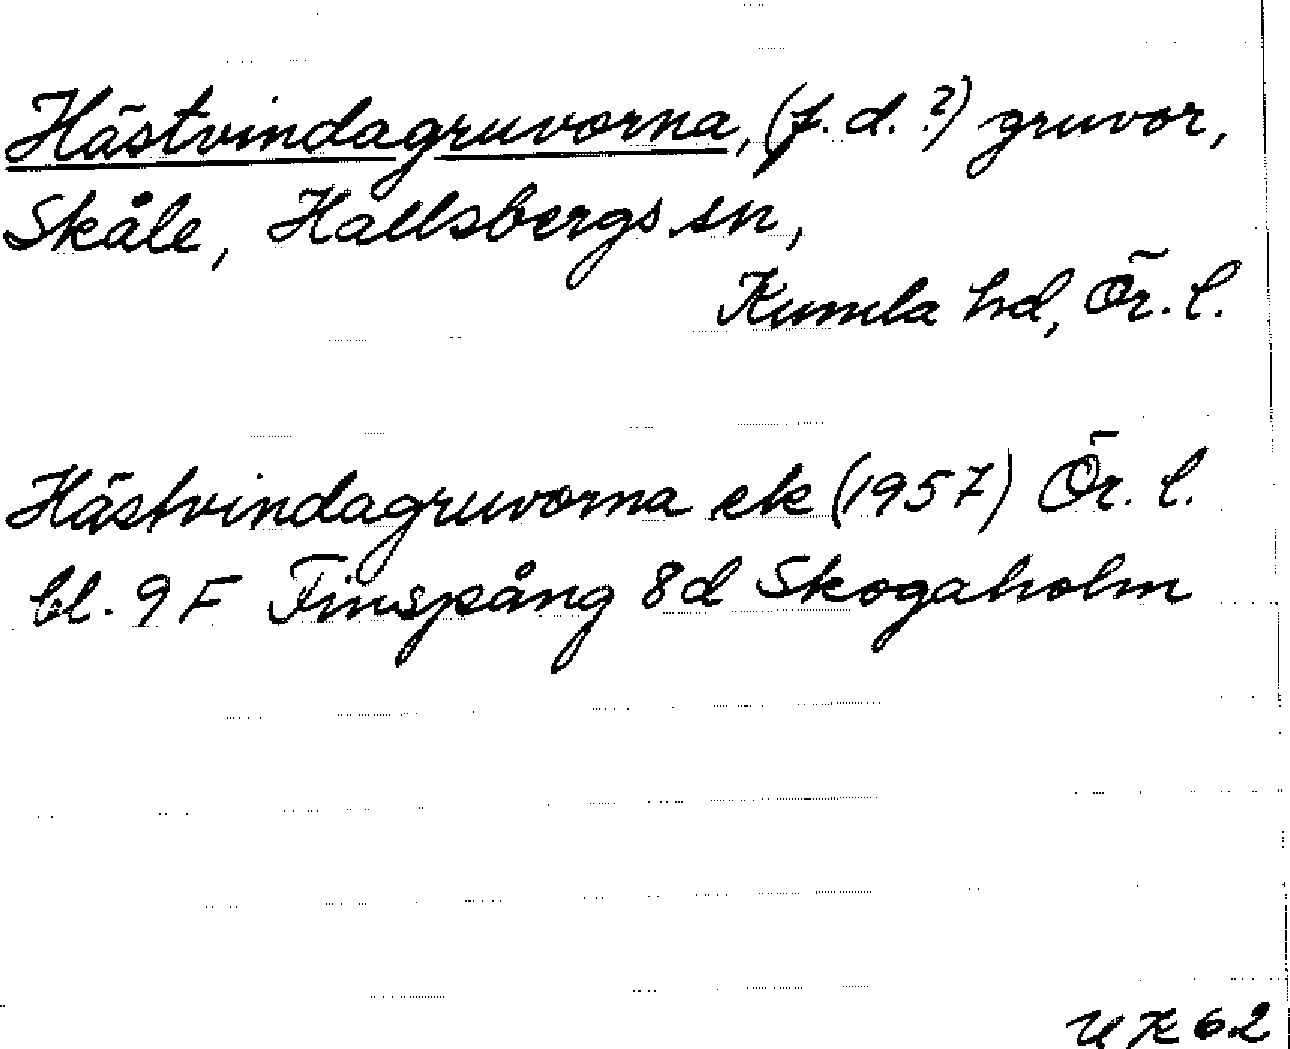 Hästvindagruvorna, (f.d.?) gruvor,
Skåle, Hallsbergs sn,
Kumla hd, Ör. l.
Hästvindagruvorna ek (1957) Ör. l.
bl. 9F Finspång 8d Skogaholm
UK 62